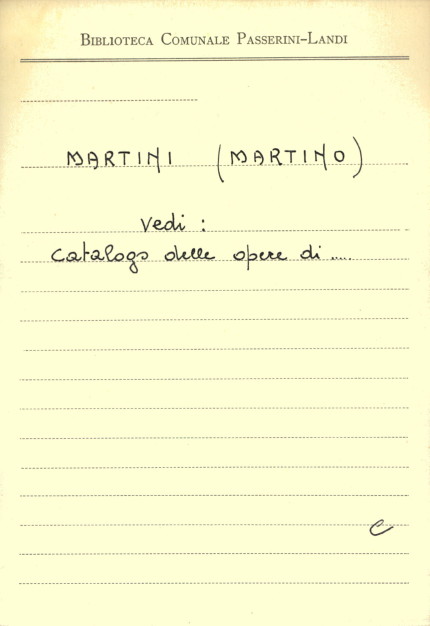 BIBLIOTECA COMUNALE PASSERINI-LANDI
MARTINI (MARTINO)
Vedi :
Catalogo delle opere di .....
C